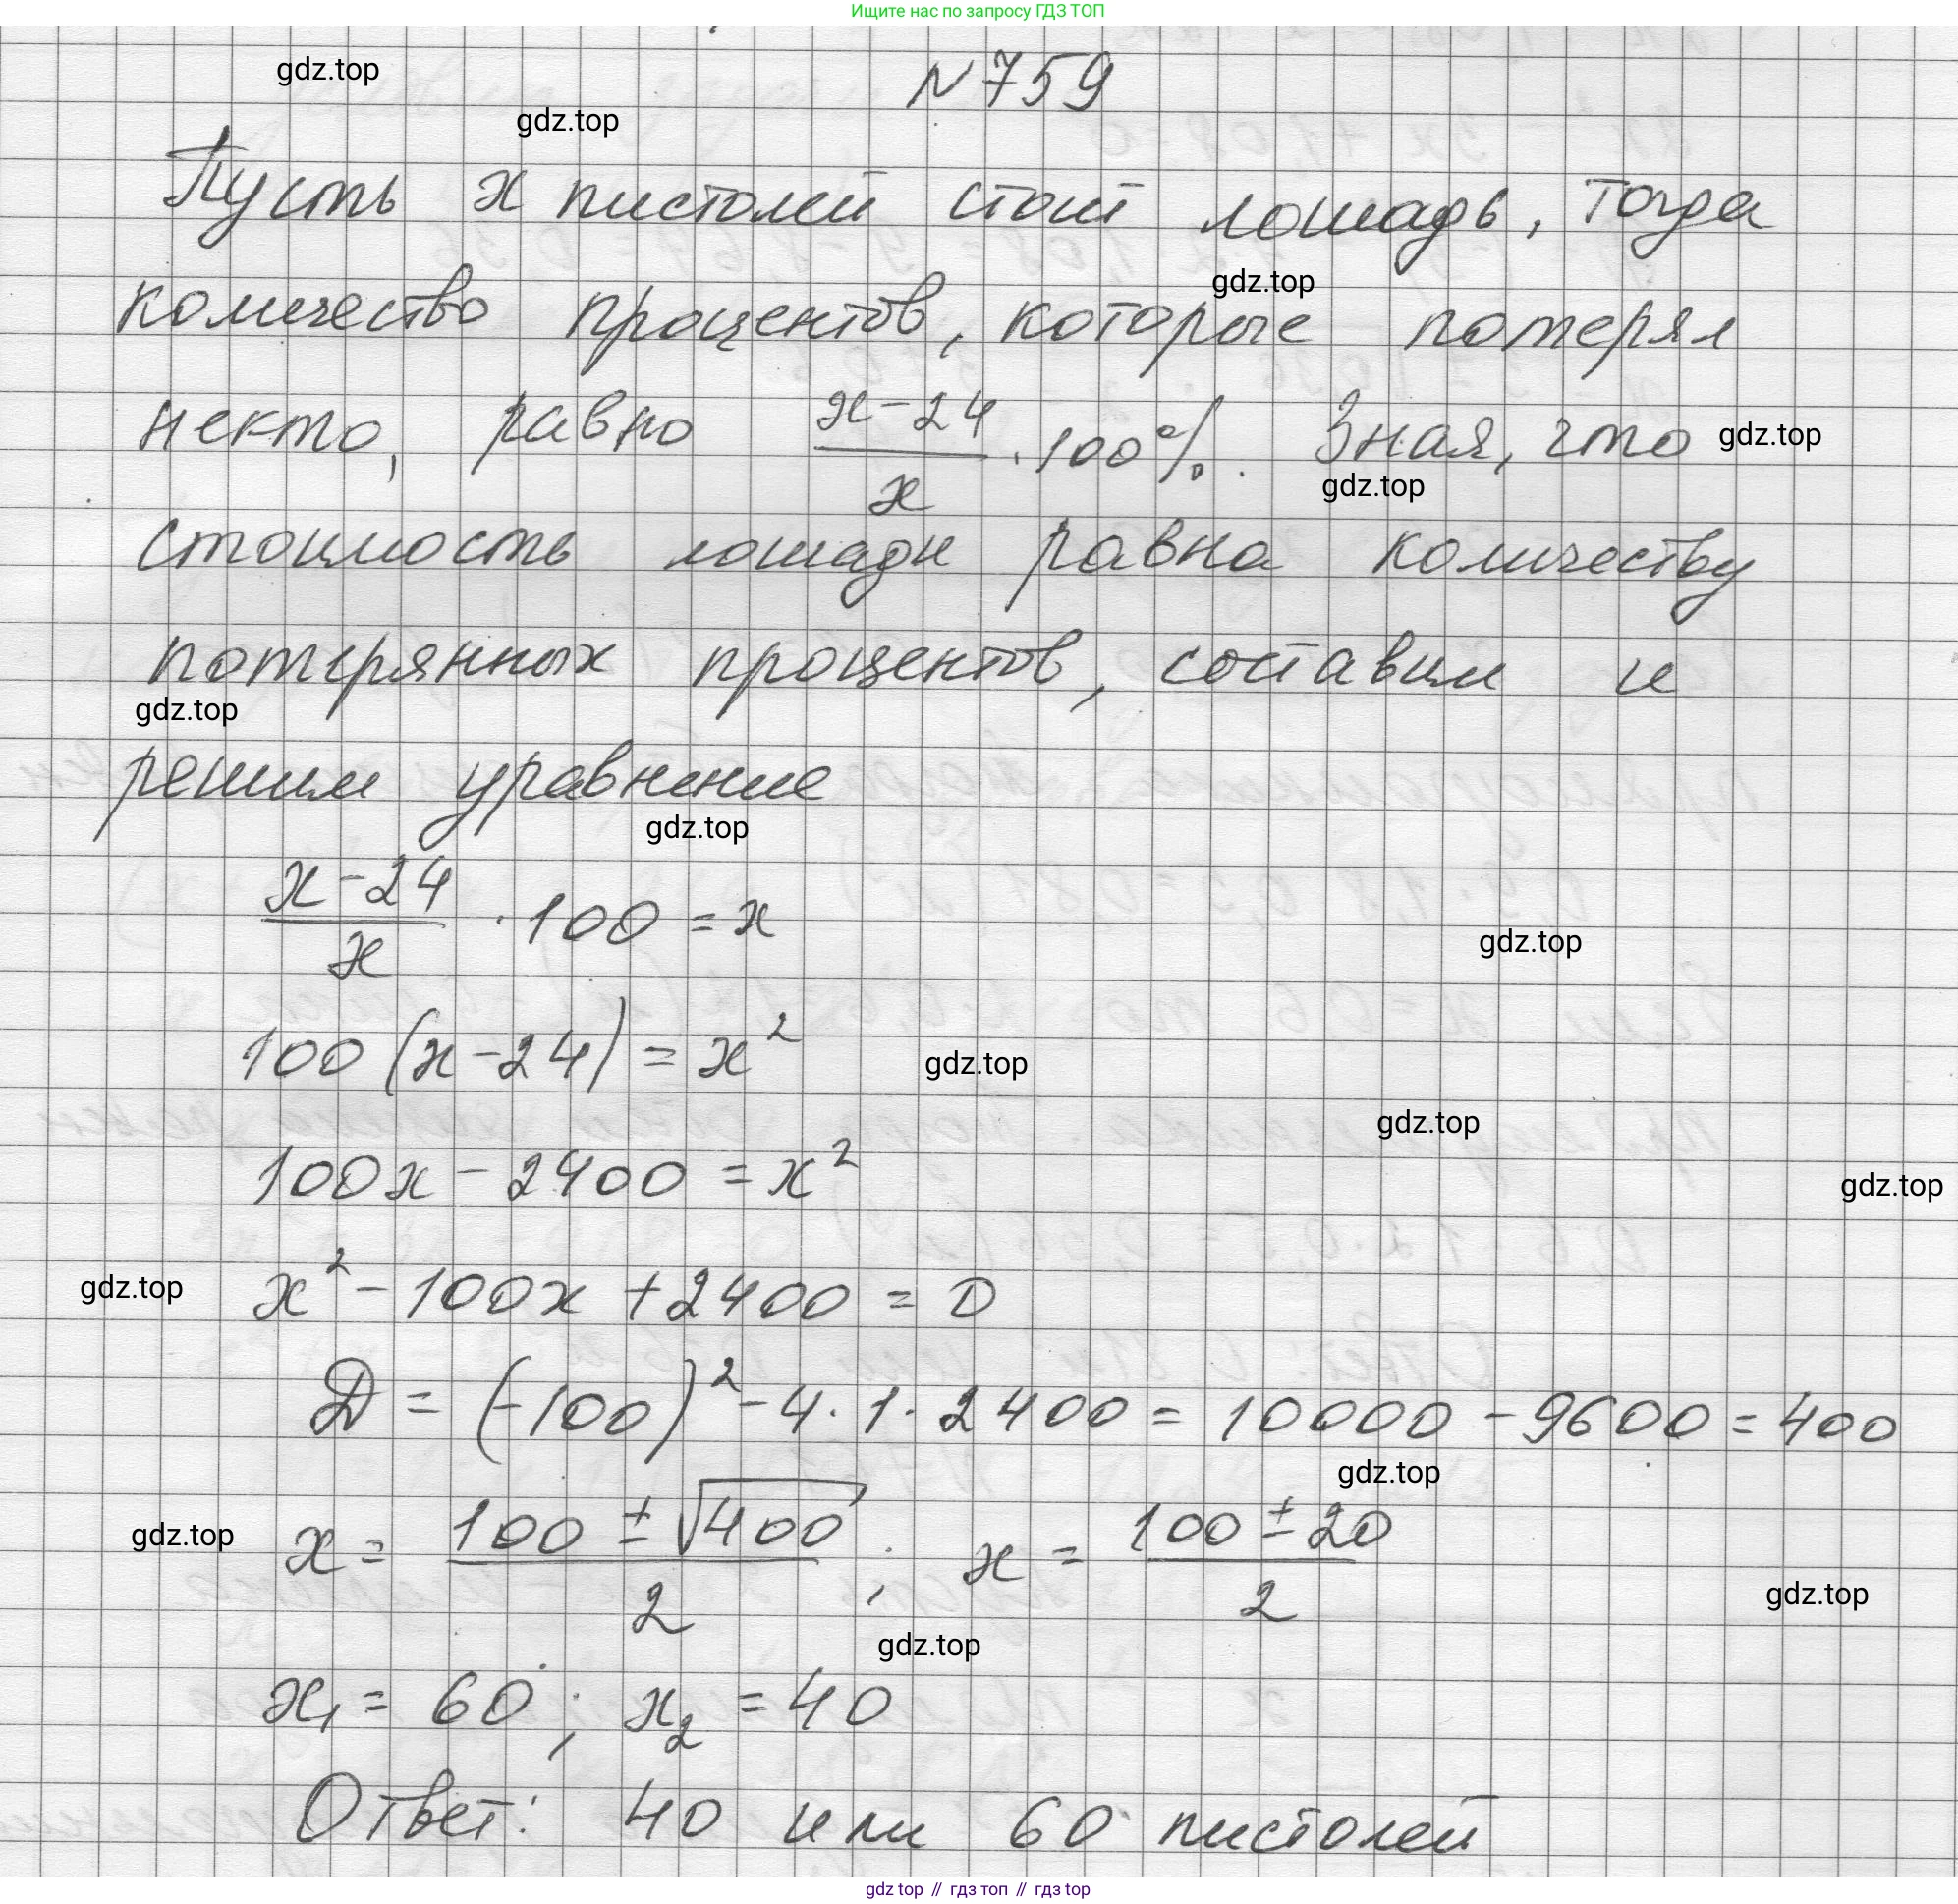 Ищите нас по запросу ГДЗ ТОП
gdz.top
N 759
gdz.top
Пусть x пистолей стоит лошадь, тогда
gdz.top
количество процентов, которые потерял
некто, равно (x-24)/x · 100%. Зная, что
gdz.top
gdz.top
стоимость лошади равна количеству
потерянных процентов, составим и
gdz.top
решим уравнение
gdz.top
(x-24)/x · 100 = x
gdz.top
100(x-24) = x²
gdz.top
gdz.top
100x - 2400 = x²
gdz.top
x² - 100x + 2400 = 0
gdz.top
D = (-100)² - 4 · 1 · 2400 = 10000 - 9600 = 400
gdz.top
x = (100 ± √400)/2 ; x = (100 ± 20)/2
gdz.top
gdz.top
gdz.top
x₁ = 60 ; x₂ = 40
Ответ: 40 или 60 пистолей
gdz top // гдз топ // гдз top